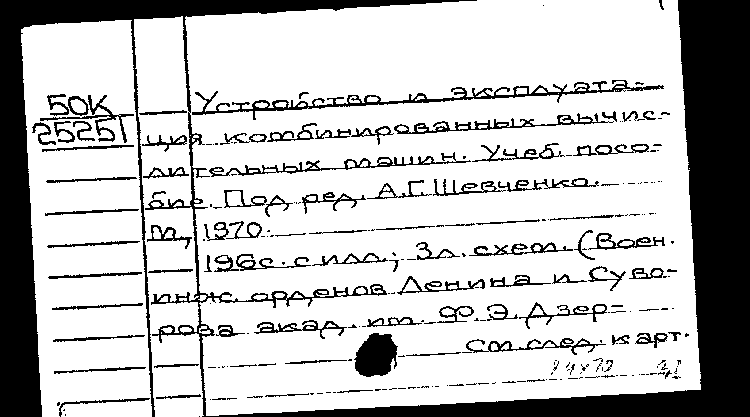 50К
25251
Устройство и эксплуата-
ция комбинированных вычис-
лительных машин. Учеб. посо-
бие. Под ред. А.Г. Шевченко.
М., 1970.
196с. с илл.; 3л. схем. (Воен.
инж. орденов Ленина и Суво-
рова акад. им. Ф.Э. Дзер-
См. след. карт.